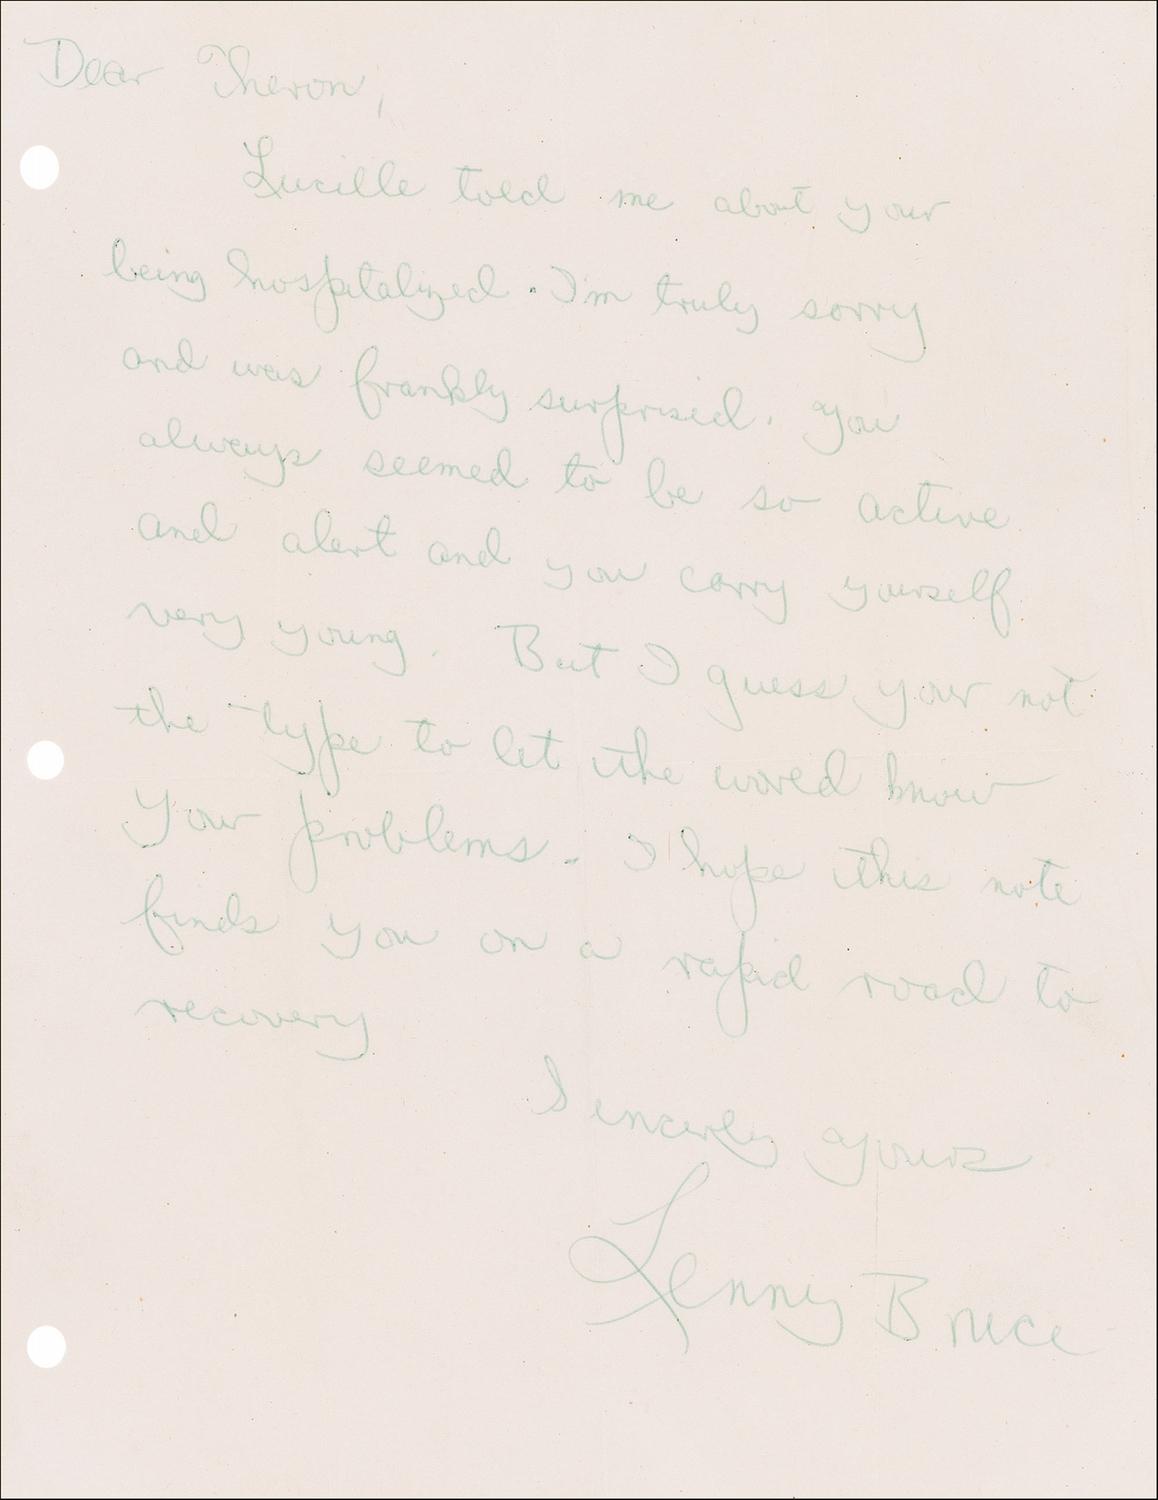 Dear Theron,
Lucille told me about your
being hospitalized. I'm truly sorry
and was frankly surprised. You
always seemed to be so active
and alert and you carry yourself
very young. But I guess your not
the type to let the world know
your problems. I hope this note
finds you on a rapid road to
recovery
Sincerly yours
Lenny Bruce